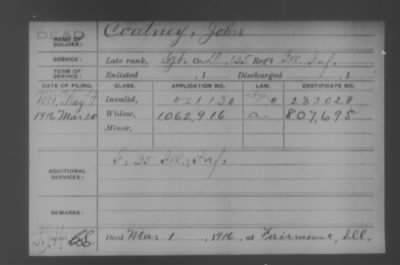 DEAD
NAME OF SOLDIER: Coutney, John
SERVICE: Late rank, Sgt. Co. D, 135 Reg't Ill Inf.
TERM OF SERVICE: Enlisted , 1 Discharged , 1
DATE OF FILING. CLASS. APPLICATION NO. LAW. CERTIFICATE NO.
May Invalid, 421130 283028
1916 Mar 20 Widow, 1,062,916 a 807,695
Minor,
ADDITIONAL SERVICES: F, 25 Ill. Inf.
REMARKS:
Died Mar 1, 1916, at Fairmount, Ill.